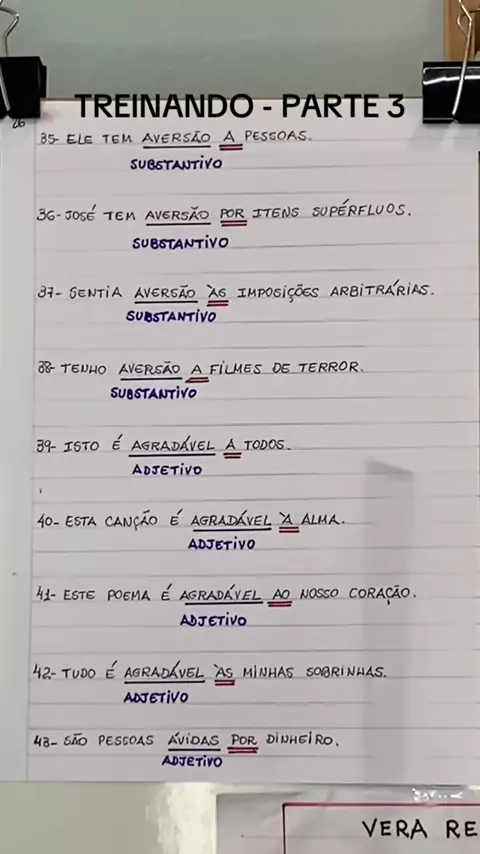 TREINANDO - PARTE 3
26
35- ELE TEM AVERSÃO A PESSOAS.
SUBSTANTIVO
36- JOSÉ TEM AVERSÃO POR ITENS SUPÉRFLUOS.
SUBSTANTIVO
37- SENTIA AVERSÃO ÀS IMPOSIÇÕES ARBITRÁRIAS.
SUBSTANTIVO
38- TENHO AVERSÃO A FILMES DE TERROR.
SUBSTANTIVO
39- ISTO É AGRADÁVEL A TODOS.
ADJETIVO
40- ESTA CANÇÃO É AGRADÁVEL À ALMA.
ADJETIVO
41- ESTE POEMA É AGRADÁVEL AO NOSSO CORAÇÃO.
ADJETIVO
42- TUDO É AGRADÁVEL ÀS MINHAS SOBRINHAS.
ADJETIVO
43- SÃO PESSOAS ÁVIDAS POR DINHEIRO.
ADJETIVO
VERA RE